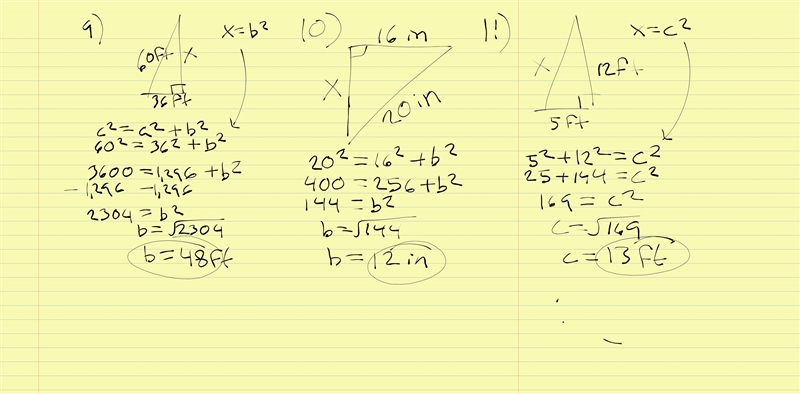 9)
60ft
x
x=b²
36ft
c²=a²+b²
60²=36²+b²
3600=1,296+b²
-1,296 -1,296
2304=b²
b=√2304
b=48ft
10)
16 in
x
20 in
20²=16²+b²
400=256+b²
144=b²
b=√144
b=12 in
11)
x=c²
x
12ft
5ft
5²+12²=c²
25+144=c²
169=c²
c=√169
c=13ft